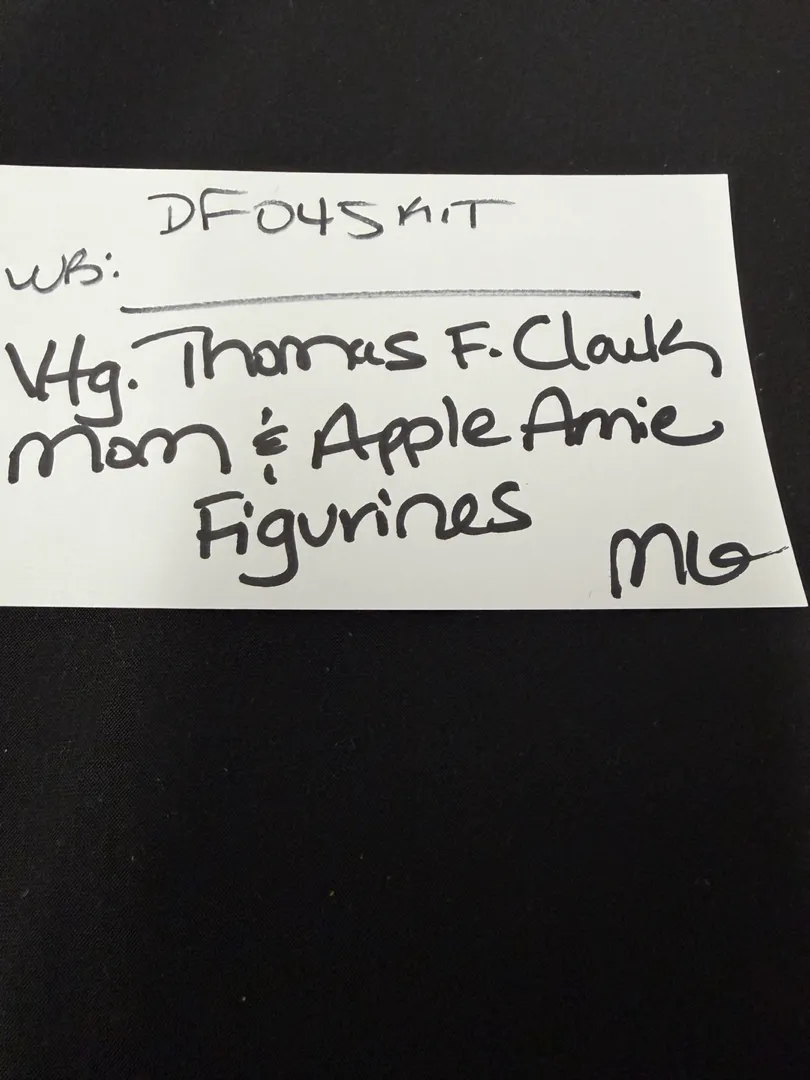 DF045KIT
WB:
Vtg. Thomas F. Clark
Mom & Apple Amie
Figurines
MG